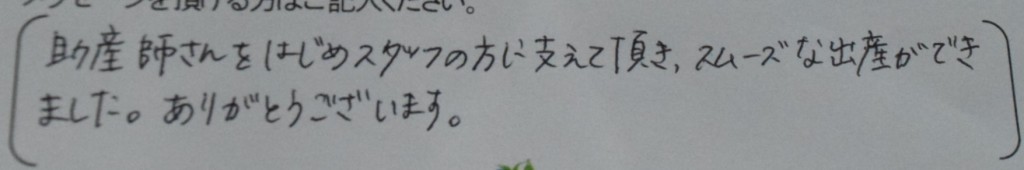 メッセージを頂ける方はご記入ください。
助産師さんをはじめスタッフの方に支えて頂き、スムーズな出産ができ
ました。ありがとうございます。